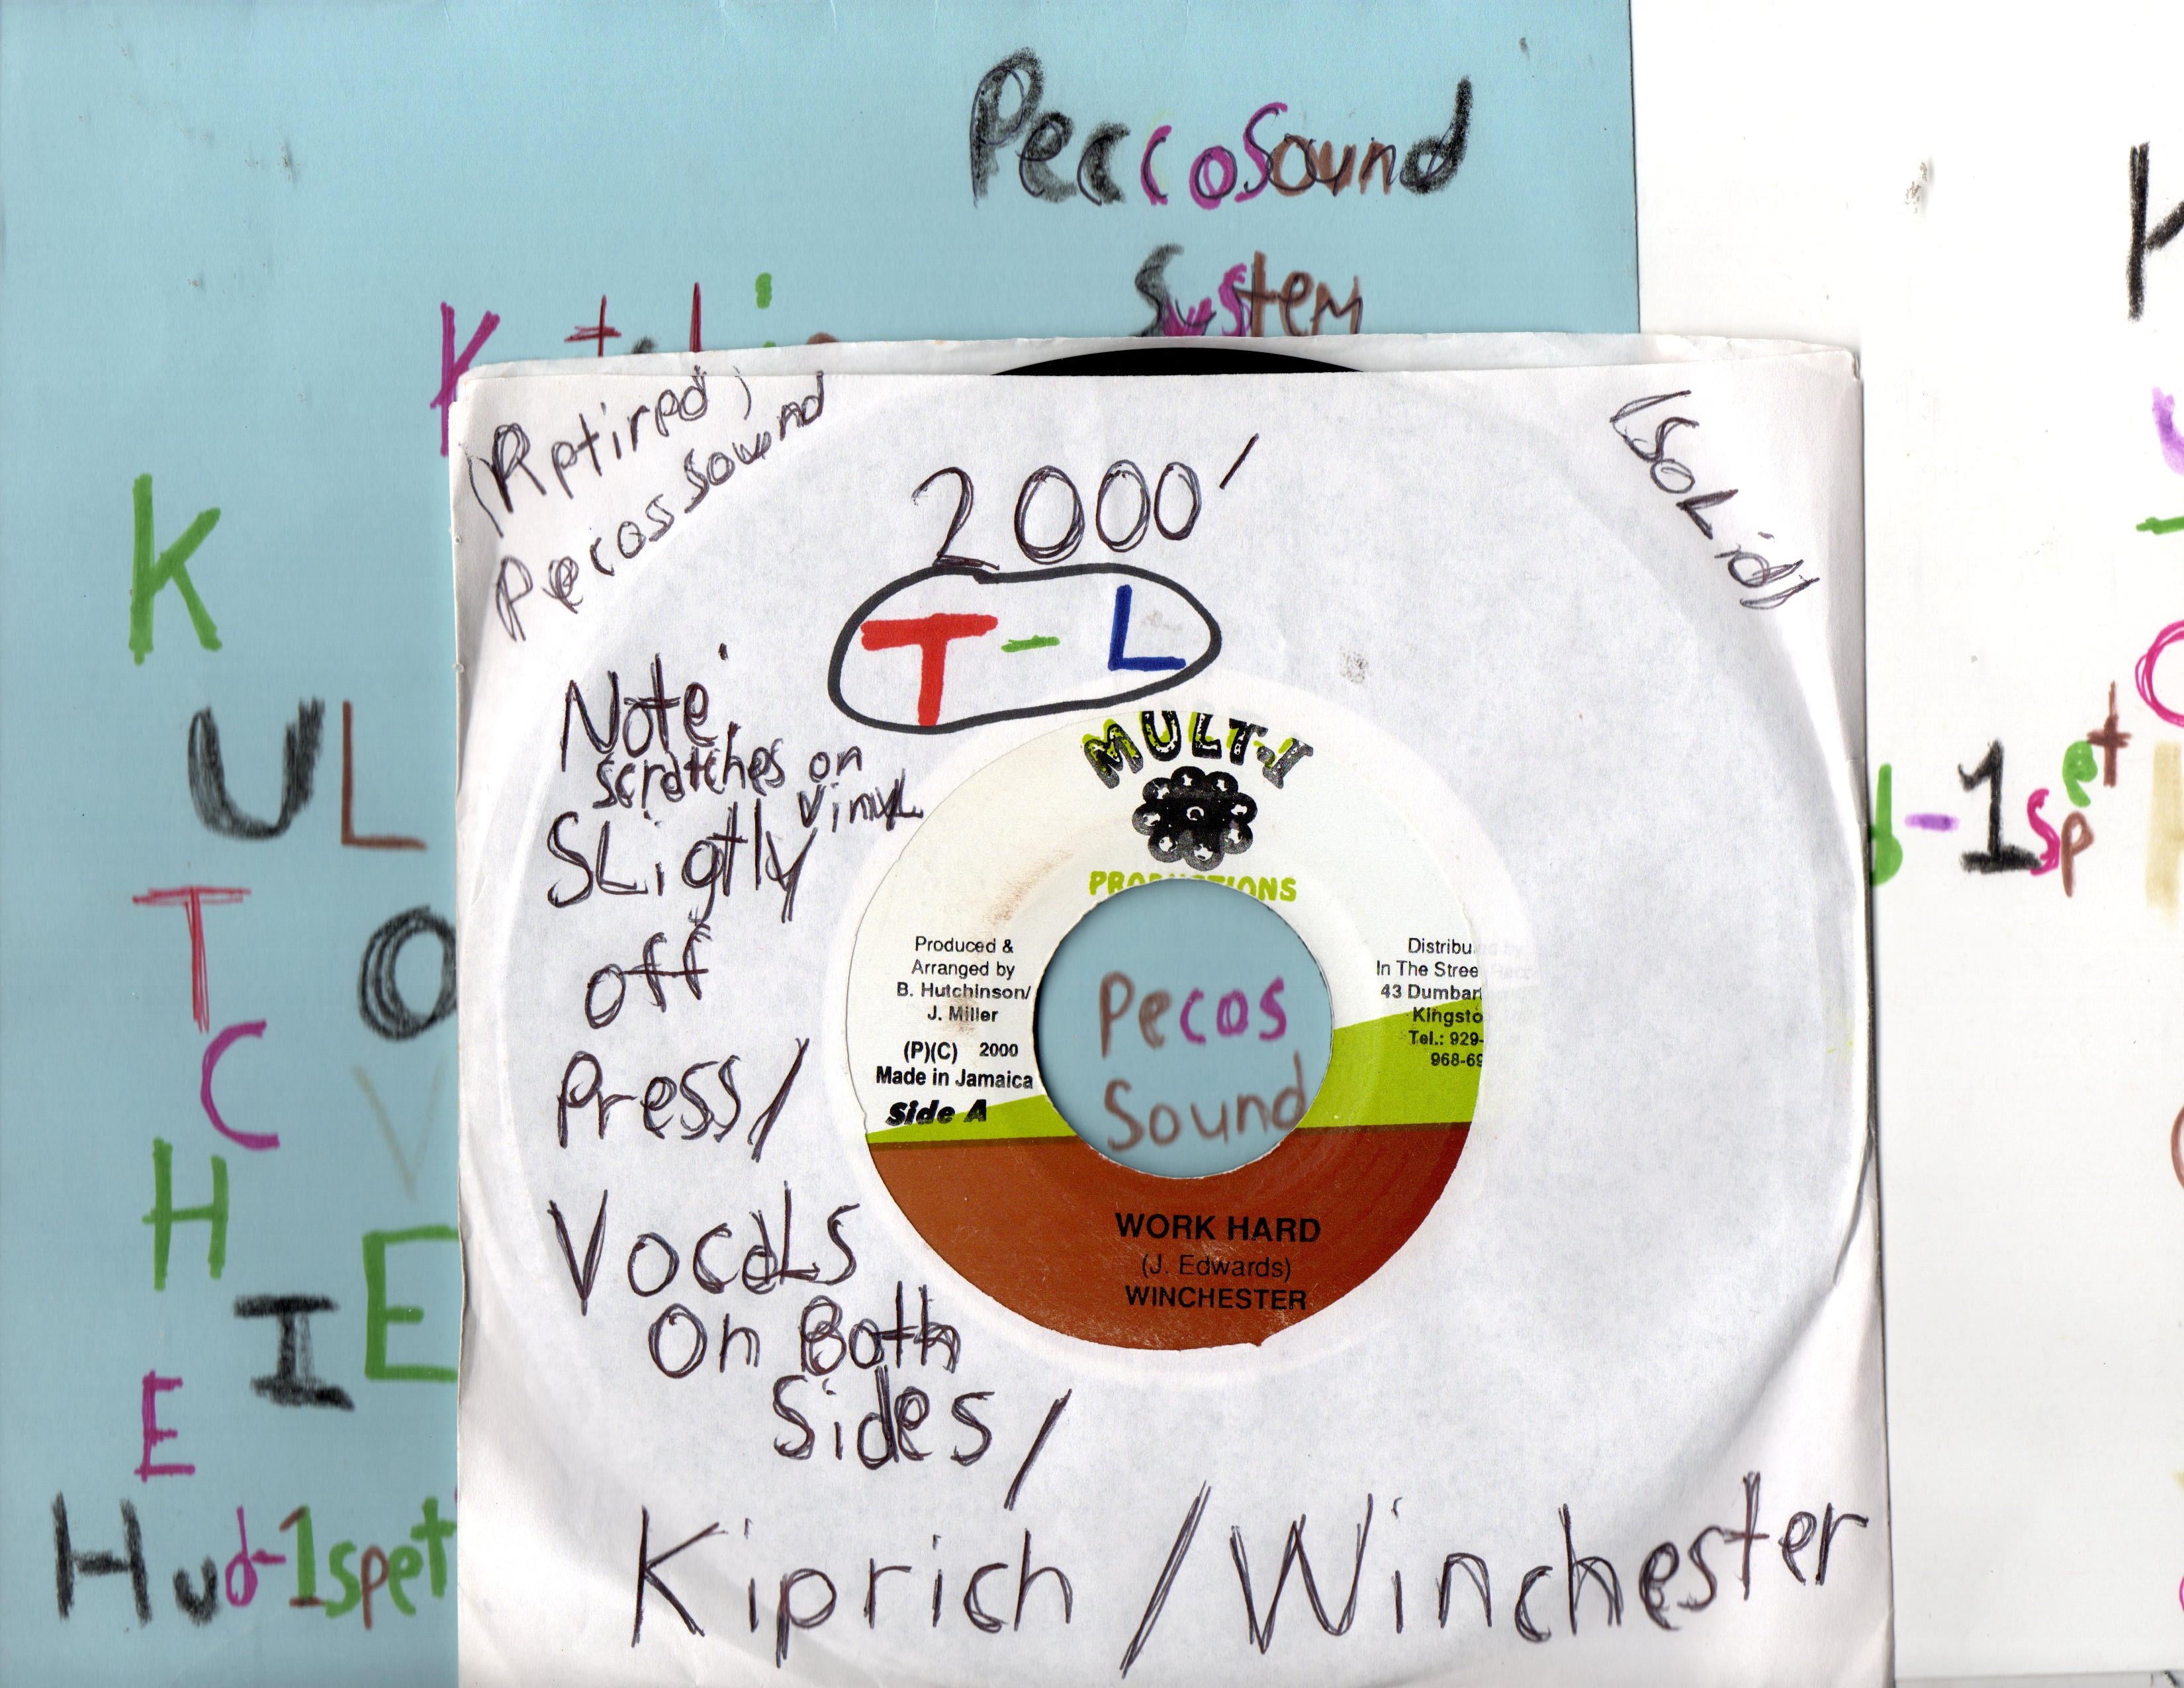 PeccoSound
System
K
(Retired)
Pecos sound
(SoLid)
2000'
T-L
Note:
scratches on
vinyL
SLigtly
off
Press/
VocaLs
On Both
Sides/
Kiprich / Winchester
MULT-I
PRODUCTIONS
Produced &
Arranged by
B. Hutchinson/
J. Miller
(P)(C) 2000
Made in Jamaica
Side A
Distribu
In The Stree
43 Dumbar
Kingsto
Tel.: 929-
968-69
Pecos
Sound
WORK HARD
(J. Edwards)
WINCHESTER
K
U L
T O
C V
H E
I
E
Hud-1spet
d-1spet